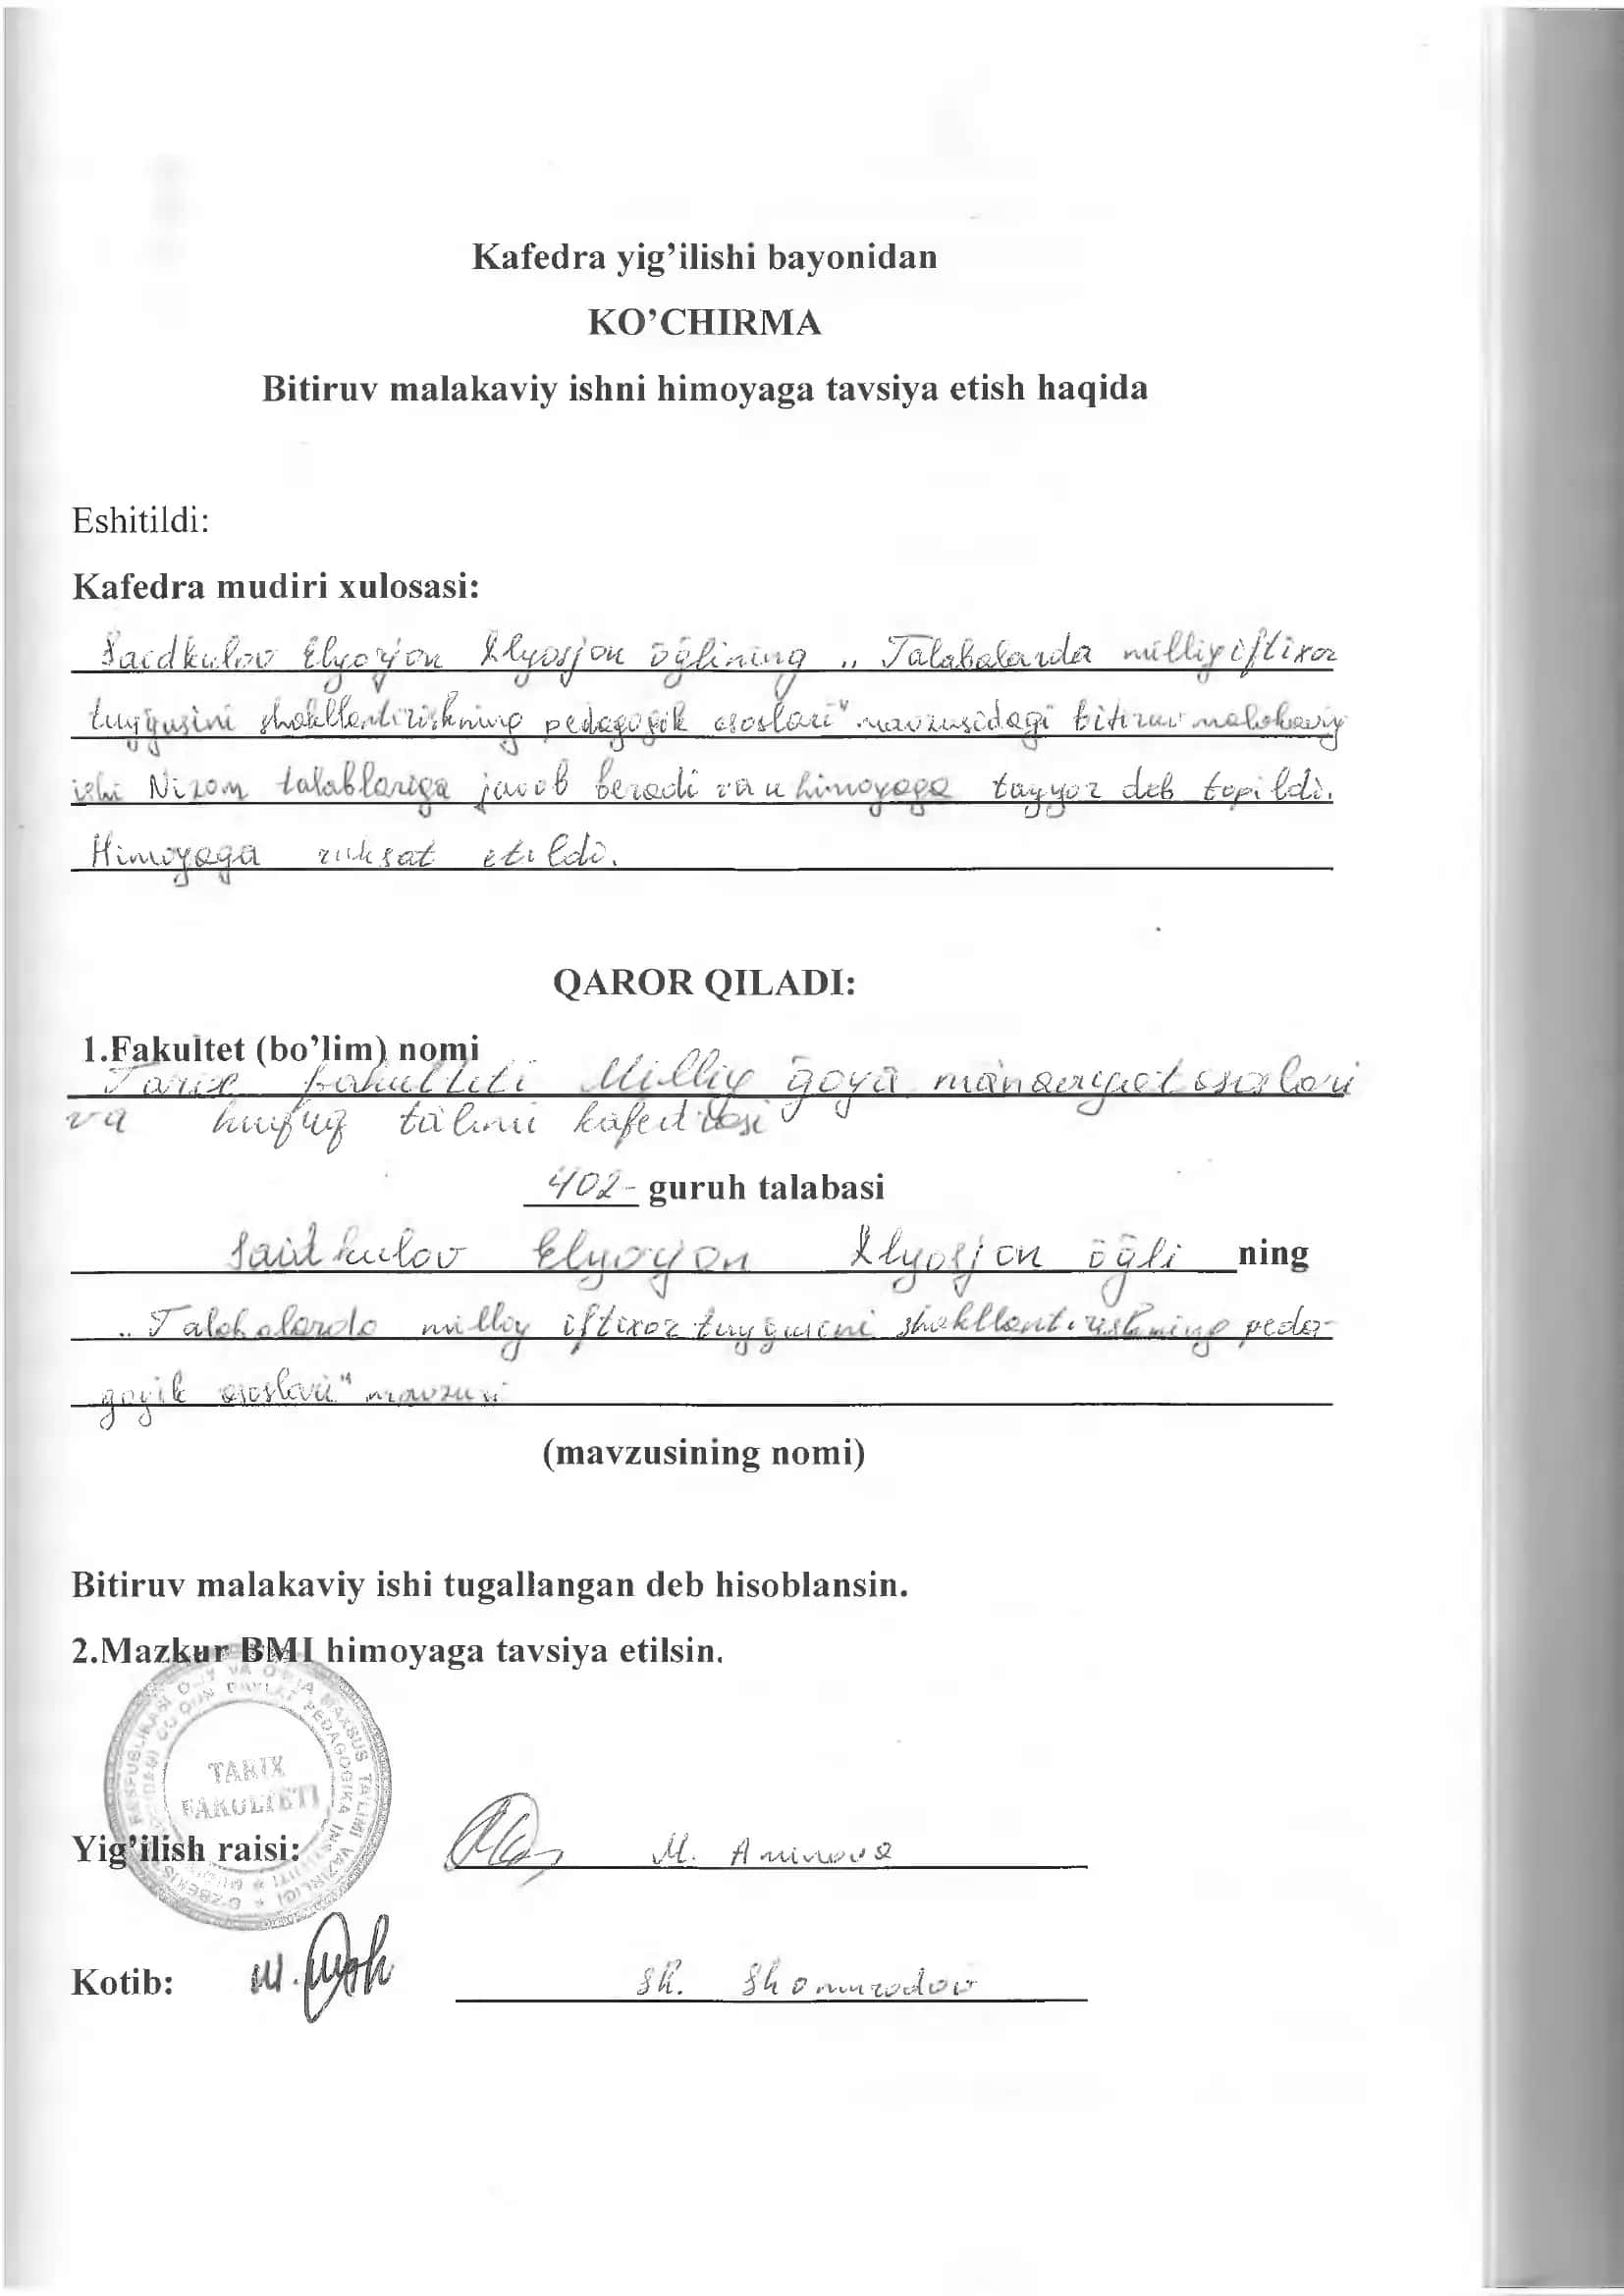 Kafedra yig’ilishi bayonidan
KO’CHIRMA
Bitiruv malakaviy ishni himoyaga tavsiya etish haqida
Eshitildi:
Kafedra mudiri xulosasi:
Saidkulov Elyorjon Ilyosjon õg̃lining „ Talabalarda milliy iftixor
tuyg̃usini shakllantirishning pedagogik asoslari" mavzusidagi bitiruv malakaviy
ishi Nizom talablariga javob beradi va u himoyaga tayyor deb topildi.
Himoyaga ruhsat etildi.
QAROR QILADI:
1.Fakultet (bo’lim) nomi
Tarix fakulteti Milliy g̃oya mánaviyat asoslari
va huquq tálimi kafedrasi
402- guruh talabasi
Saidkulov Elyorjon Ilyosjon õg̃li ning
„ Talabalarda milliy iftixor tuyg̃usini shakllantirishning peda-
gogik asoslari" mavzusi
(mavzusining nomi)
Bitiruv malakaviy ishi tugallangan deb hisoblansin.
2.Mazkur BMI himoyaga tavsiya etilsin.
TARIX
FAKULTETI
Yig’ilish raisi: M. Aminova
Kotib: Sh. Shomurodov